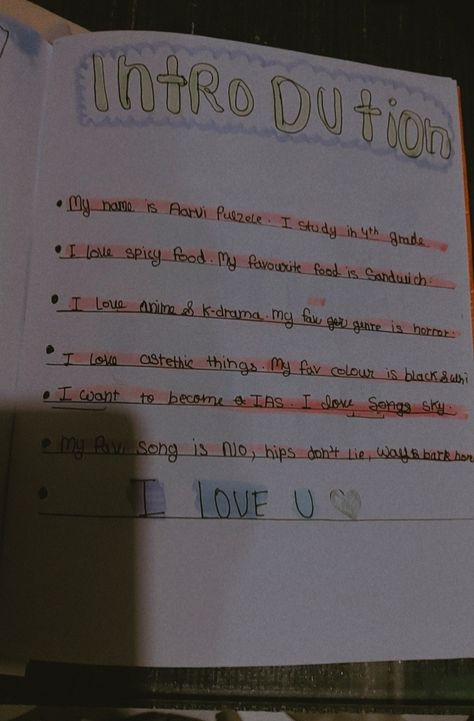 IntRoDUtion
• My name is Aarvi Fulzele. I study in 4th grade.
• I love spicy food. My favourite food is Sandwich.
• I love anime & K-drama. My fav genre is horror.
• I love astethic things. My fav colour is black &
• I want to become a IAS. I love Songs sky.
• My fav. song is NO, hips don't lie, way back
• I LOVE U